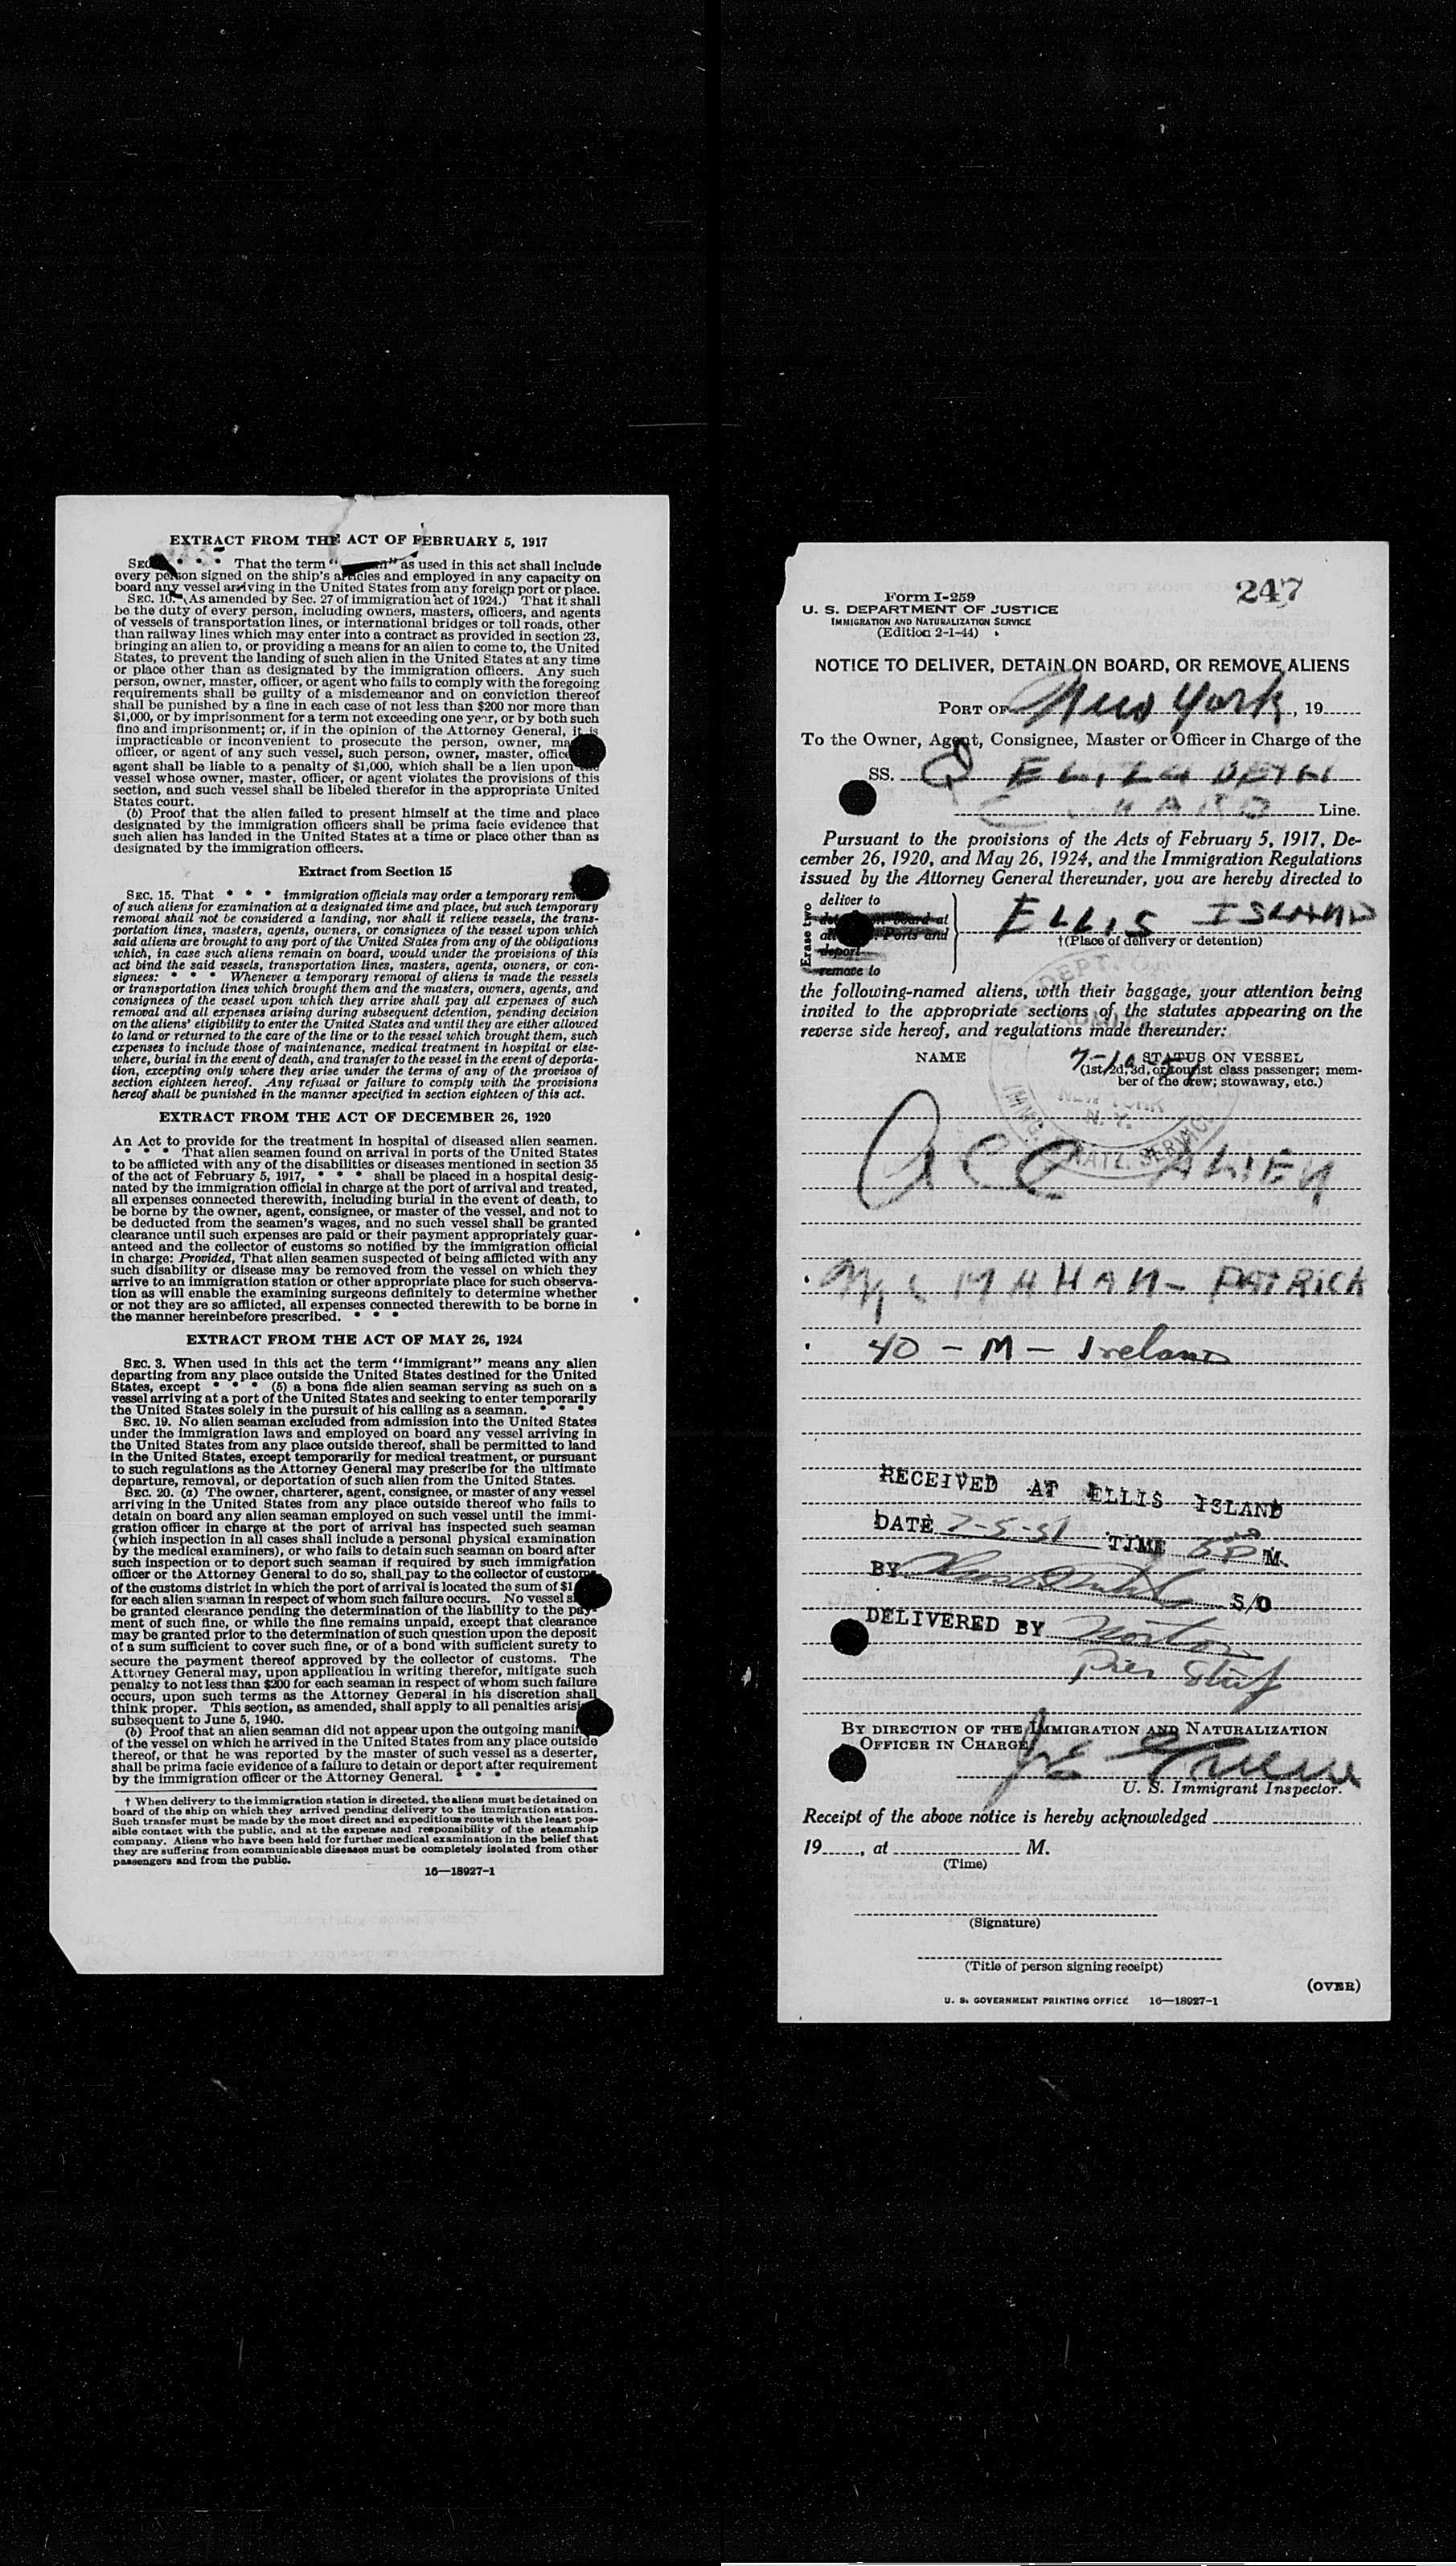 EXTRACT FROM THE ACT OF FEBRUARY 5, 1917
SEC * * * That the term " " as used in this act shall include
every person signed on the ship's articles and employed in any capacity on
board any vessel arriving in the United States from any foreign port or place.
SEC. 10. (As amended by Sec. 27 of immigration act of 1924.) That it shall
be the duty of every person, including owners, masters, officers, and agents
of vessels of transportation lines, or international bridges or toll roads, other
than railway lines which may enter into a contract as provided in section 23,
bringing an alien to, or providing a means for an alien to come to, the United
States, to prevent the landing of such alien in the United States at any time
or place other than as designated by the immigration officers. Any such
person, owner, master, officer, or agent who fails to comply with the foregoing
requirements shall be guilty of a misdemeanor and on conviction thereof
shall be punished by a fine in each case of not less than $200 nor more than
$1,000, or by imprisonment for a term not exceeding one year, or by both such
fine and imprisonment; or, if in the opinion of the Attorney General, it is
impracticable or inconvenient to prosecute the person, owner, ma
officer, or agent of any such vessel, such person, owner, master, office
agent shall be liable to a penalty of $1,000, which shall be a lien upon
vessel whose owner, master, officer, or agent violates the provisions of this
section, and such vessel shall be libeled therefor in the appropriate United
States court.
(b) Proof that the alien failed to present himself at the time and place
designated by the immigration officers shall be prima facie evidence that
such alien has landed in the United States at a time or place other than as
designated by the immigration officers.
Extract from Section 15
SEC. 15. That * * * immigration officials may order a temporary rem
of such aliens for examination at a designated time and place, but such temporary
removal shall not be considered a landing, nor shall it relieve vessels, the trans-
portation lines, masters, agents, owners, or consignees of the vessel upon which
said aliens are brought to any port of the United States from any of the obligations
which, in case such aliens remain on board, would under the provisions of this
act bind the said vessels, transportation lines, masters, agents, owners, or con-
signees: * * * Whenever a temporary removal of aliens is made the vessels
or transportation lines which brought them and the masters, owners, agents, and
consignees of the vessel upon which they arrive shall pay all expenses of such
removal and all expenses arising during subsequent detention, pending decision
on the aliens' eligibility to enter the United States and until they are either allowed
to land or returned to the care of the line or to the vessel which brought them, such
expenses to include those of maintenance, medical treatment in hospital or else-
where, burial in the event of death, and transfer to the vessel in the event of deporta-
tion, excepting only where they arise under the terms of any of the provisos of
section eighteen hereof. Any refusal or failure to comply with the provisions
hereof shall be punished in the manner specified in section eighteen of this act.
EXTRACT FROM THE ACT OF DECEMBER 26, 1920
An Act to provide for the treatment in hospital of diseased alien seamen.
* * * That alien seamen found on arrival in ports of the United States
to be afflicted with any of the disabilities or diseases mentioned in section 35
of the act of February 5, 1917, * * * shall be placed in a hospital desig-
nated by the immigration official in charge at the port of arrival and treated,
all expenses connected therewith, including burial in the event of death, to
be borne by the owner, agent, consignee, or master of the vessel, and not to
be deducted from the seamen's wages, and no such vessel shall be granted
clearance until such expenses are paid or their payment appropriately guar-
anteed and the collector of customs so notified by the immigration official
in charge: Provided, That alien seamen suspected of being afflicted with any
such disability or disease may be removed from the vessel on which they
arrive to an immigration station or other appropriate place for such observa-
tion as will enable the examining surgeons definitely to determine whether
or not they are so afflicted, all expenses connected therewith to be borne in
the manner hereinbefore prescribed. * * *
EXTRACT FROM THE ACT OF MAY 26, 1924
SEC. 3. When used in this act the term "immigrant" means any alien
departing from any place outside the United States destined for the United
States, except * * * (5) a bona fide alien seaman serving as such on a
vessel arriving at a port of the United States and seeking to enter temporarily
the United States solely in the pursuit of his calling as a seaman. * * *
SEC. 19. No alien seaman excluded from admission into the United States
under the immigration laws and employed on board any vessel arriving in
the United States from any place outside thereof, shall be permitted to land
in the United States, except temporarily for medical treatment, or pursuant
to such regulations as the Attorney General may prescribe for the ultimate
departure, removal, or deportation of such alien from the United States.
SEC. 20. (a) The owner, charterer, agent, consignee, or master of any vessel
arriving in the United States from any place outside thereof who fails to
detain on board any alien seaman employed on such vessel until the immi-
gration officer in charge at the port of arrival has inspected such seaman
(which inspection in all cases shall include a personal physical examination
by the medical examiners), or who fails to detain such seaman on board after
such inspection or to deport such seaman if required by such immigration
officer or the Attorney General to do so, shall pay to the collector of customs
of the customs district in which the port of arrival is located the sum of $1
for each alien seaman in respect of whom such failure occurs. No vessel s
be granted clearance pending the determination of the liability to the pay-
ment of such fine, or while the fine remains unpaid, except that clearance
may be granted prior to the determination of such question upon the deposit
of a sum sufficient to cover such fine, or of a bond with sufficient surety to
secure the payment thereof approved by the collector of customs. The
Attorney General may, upon application in writing therefor, mitigate such
penalty to not less than $200 for each seaman in respect of whom such failure
occurs, upon such terms as the Attorney General in his discretion shall
think proper. This section, as amended, shall apply to all penalties arisi
subsequent to June 5, 1940.
(b) Proof that an alien seaman did not appear upon the outgoing manif
of the vessel on which he arrived in the United States from any place outside
thereof, or that he was reported by the master of such vessel as a deserter,
shall be prima facie evidence of a failure to detain or deport after requirement
by the immigration officer or the Attorney General. * * *
† When delivery to the immigration station is directed, the aliens must be detained on
board of the ship on which they arrived pending delivery to the immigration station.
Such transfer must be made by the most direct and expeditious route with the least pos-
sible contact with the public, and at the expense and responsibility of the steamship
company. Aliens who have been held for further medical examination in the belief that
they are suffering from communicable diseases must be completely isolated from other
passengers and from the public.
16—18927-1
247
Form I-259
U. S. DEPARTMENT OF JUSTICE
IMMIGRATION AND NATURALIZATION SERVICE
(Edition 2-1-44)
NOTICE TO DELIVER, DETAIN ON BOARD, OR REMOVE ALIENS
PORT OF New York, 19
To the Owner, Agent, Consignee, Master or Officer in Charge of the
SS. Q ELIZABETH
CUNARD Line.
Pursuant to the provisions of the Acts of February 5, 1917, De-
cember 26, 1920, and May 26, 1924, and the Immigration Regulations
issued by the Attorney General thereunder, you are hereby directed to
Erase two
deliver to
ELLIS ISLAND
†(Place of delivery or detention)
Ports and
deport
remove to
the following-named aliens, with their baggage, your attention being
invited to the appropriate sections of the statutes appearing on the
reverse side hereof, and regulations made thereunder:
NAME STATUS ON VESSEL
7-10-51
(1st, 2d, 3d, or tourist class passenger; mem-
ber of the crew; stowaway, etc.)
DEPT
ADMITTED
NEW YORK
N. Y.
IMMIG. NATZ. SERVICE
ACC ALIEN
McMAHAN - PATRICK
40 - M - Ireland
RECEIVED AT ELLIS ISLAND
DATE 7-5-51 TIME M.
BY S/O
DELIVERED BY Norton
Pier Staf
BY DIRECTION OF THE IMMIGRATION AND NATURALIZATION
OFFICER IN CHARGE
U. S. Immigrant Inspector.
Receipt of the above notice is hereby acknowledged
19 , at M.
(Time)
(Signature)
(Title of person signing receipt)
(OVER)
U. S. GOVERNMENT PRINTING OFFICE 16—18927-1